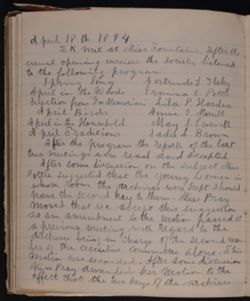 April 18th 1894
ΣΚ met at Miss Fountain's. After the
usual opening exercises the society listened
to the following program.
Spring Song Gertrude L.
April in the Woods Ermina E. Pottle
Selection from Tennyson Lila P. Harden
April Birds Annie E. Merrill
April in the Household May
April Traditions Sadie L. Brown
After the program the reports of the last
two meetings were read and accepted.
After some discussion on the subject Miss
Pottle suggested that the young woman in
whose room the archives were kept should
have the second key to them. Miss Bray
moved that we accept this suggestion
as an amendment to the motion passed at
a previous meeting with regard to the
archives being in charge of the second member
of the executive committee alone. The
motion was seconded. After some discussion
Miss Bray amended her motion to the
effect that the two keys of the archives